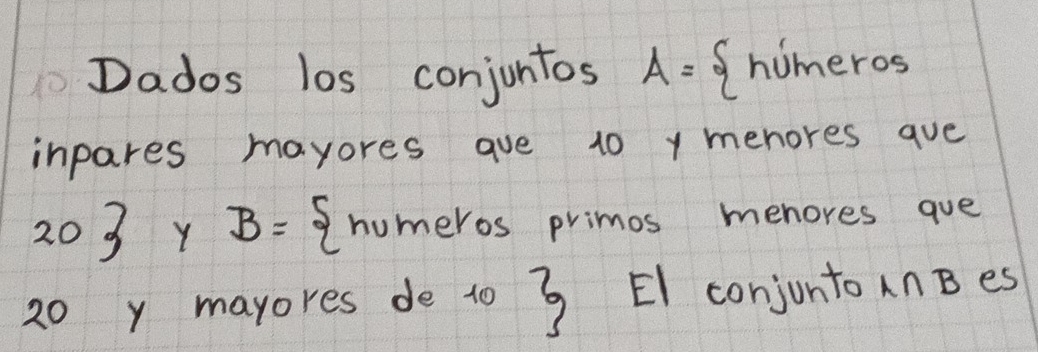 10. Dados los conjuntos A = { números
inpares mayores que 10 y menores que
20 } y B = { numeros primos menores que
20 y mayores de 10 } El conjunto A∩B es